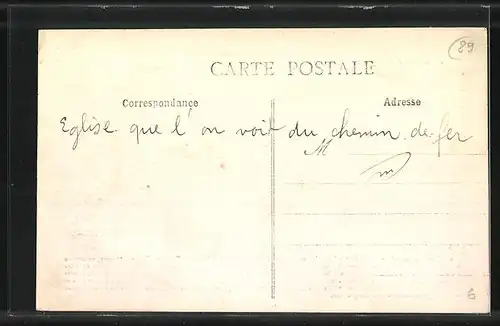 89
CARTE POSTALE
Correspondance
Adresse
Eglise que l'on voit du chemin de fer
M
m
6